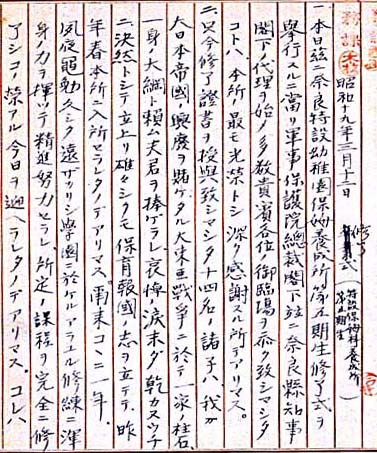 昭和十九年三月十三日
修了式(特設保姆科養成所第五期生)
一、本日玆ニ奈良特設幼稚園保姆養成所第五期生修了式ヲ
擧行スルニ當リ軍事保護院總裁閣下並ニ奈良縣知事
閣下ノ代理ヲ始メ多数貴賓各位ノ御臨場ヲ忝ク致シマシタ
コトハ本所ノ最モ光榮トシ深ク感謝スル所デアリマス。
二、只今修了證書ヲ授與致シマシタ十四名ノ諸子ハ、我ガ
大日本帝國ノ興廢ヲ賭ケタル大東亜戰爭ニ於テ一家ノ柱石
一身ノ大綱ト頼ム夫君ヲ捧ゲラレ哀悼ノ涙未ダ乾カヌウチ
ニ決然トシテ立上リ雄々シクモ保育報國ノ志ヲ立テテ、昨
年春本所ニ入所セラレタノデアリマス。爾来コヽニ一年、
夙夜黽勉久シク遠ザカリシ學園ニ於ケルアラユル修練ニ渾
身ノ力ヲ揮ッテ精進努力セラレ所定ノ課程ヲ完全ニ修
アシコノ榮アル今日ヲ迎ヘラレタノデアリマス。コレハ